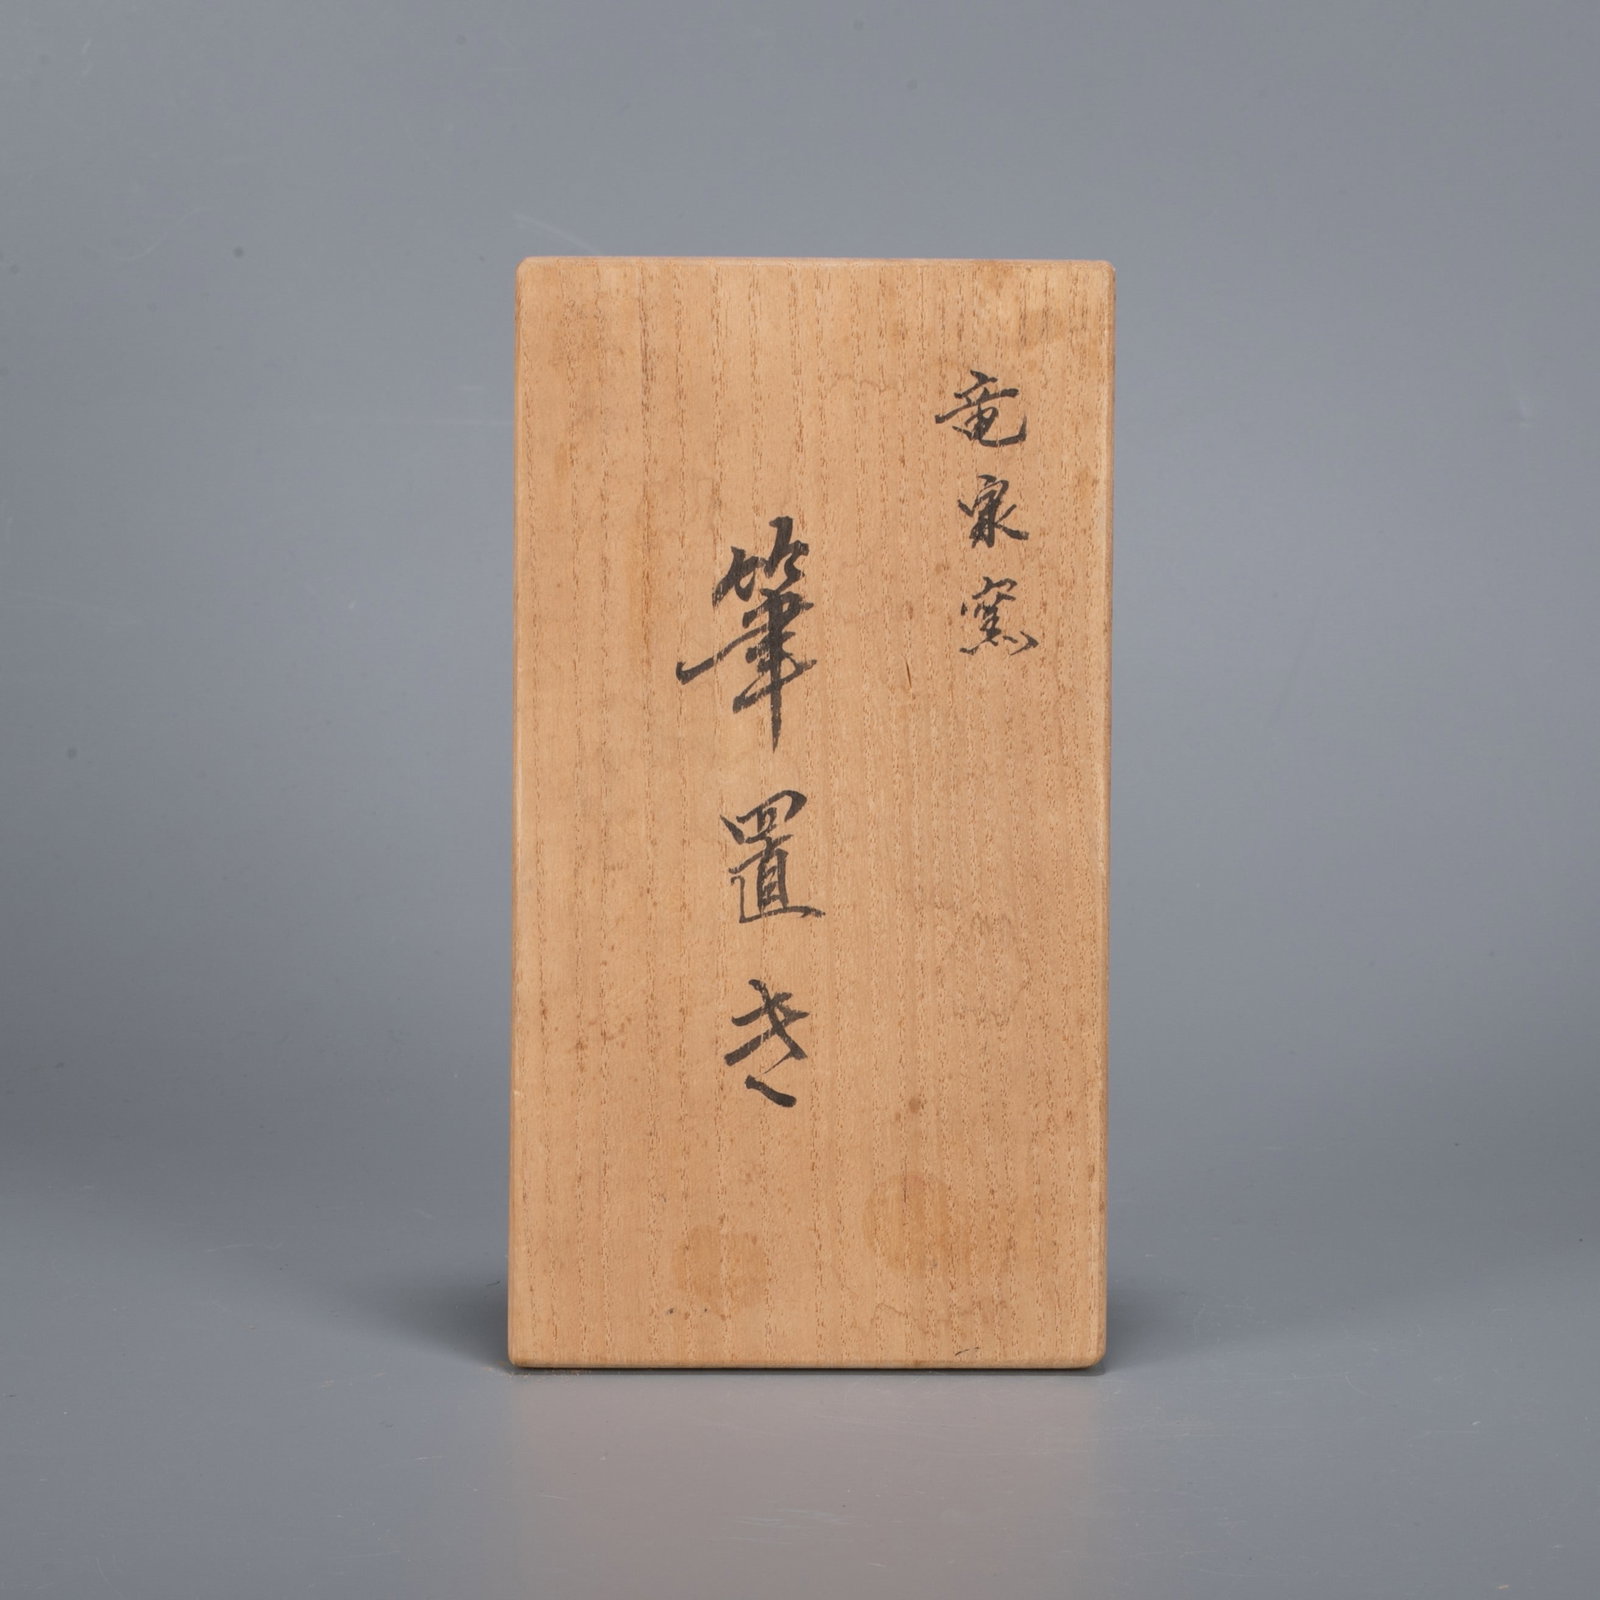 竜泉窯
筆置き